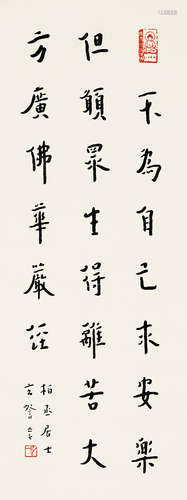 不為自己求安樂
但願眾生得離苦大
方廣佛華嚴經
柏丞居士